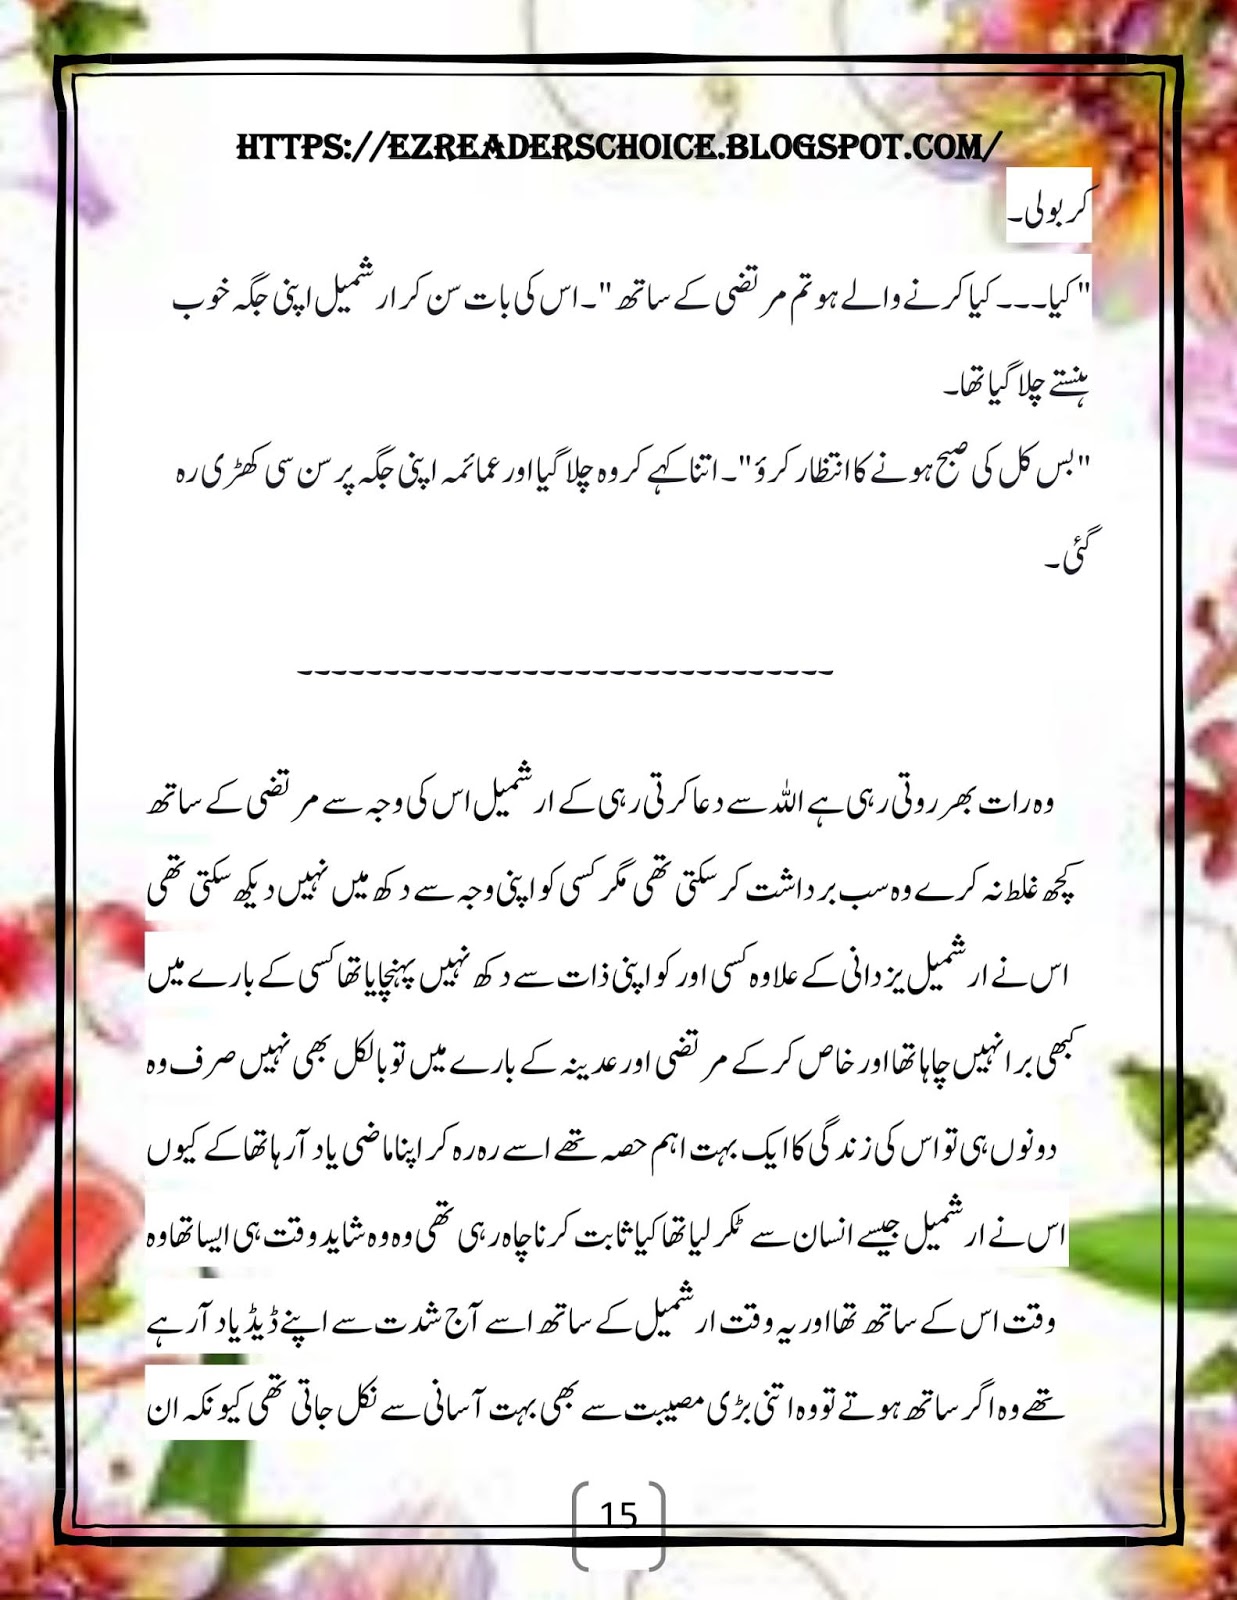 HTTPS://EZREADERSCHOICE.BLOGSPOT.COM/
کر بولی۔
"کیا۔۔۔ کیا کرنے والے ہو تم مرتضی کے ساتھ "۔اس کی بات سن کر ارشمیل اپنی جگہ خوب
ہنستے چلا گیا تھا۔
"بس کل کی صبح ہونے کا انتظار کرؤ"۔ اتنا کہے کر وہ چلا گیا اور عمائمہ اپنی جگہ پر سن سی کھڑی رہ
گئی۔
-------------------------------
وہ رات بھر روتی رہی ہے اللہ سے دعا کرتی رہی کے ارشمیل اس کی وجہ سے مرتضی کے ساتھ
کچھ غلط نہ کرے وہ سب برداشت کر سکتی تھی مگر کسی کو اپنی وجہ سے دکھ میں نہیں دیکھ سکتی تھی
اس نے ارشمیل یزدانی کے علاوہ کسی اور کو اپنی ذات سے دکھ نہیں پہنچایا تھا کسی کے بارے میں
کبھی برا نہیں چاہا تھا اور خاص کر کے مرتضی اور عدینہ کے بارے میں تو بالکل بھی نہیں صرف وہ
دونوں ہی تو اس کی زندگی کا ایک بہت اہم حصہ تھے اسے رہ رہ کر اپنا ماضی یاد آ رہا تھا کے کیوں
اس نے ارشمیل جیسے انسان سے ٹکر لیا تھا کیا ثابت کرنا چاہ رہی تھی وہ وہ شاید وقت ہی ایسا تھا وہ
وقت اس کے ساتھ تھا اور یہ وقت ارشمیل کے ساتھ اسے آج شدت سے اپنے ڈیڈ یاد آرہے
تھے وہ اگر ساتھ ہوتے تو وہ اتنی بڑی مصیبت سے بھی بہت آسانی سے نکل جاتی تھی کیونکہ ان
15